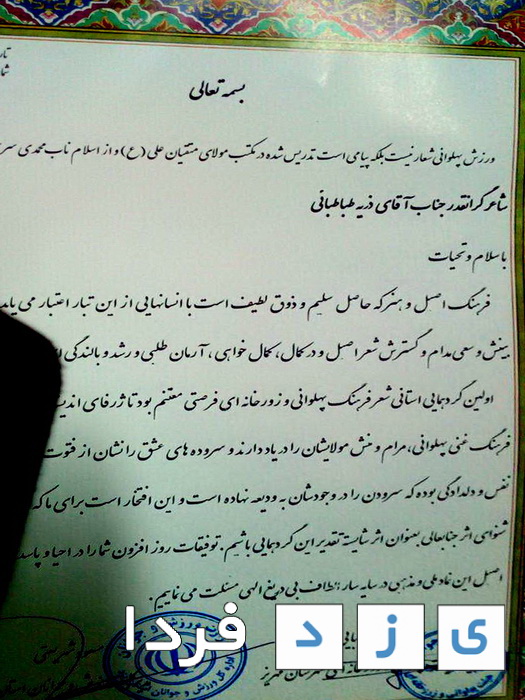 بسمه تعالی
ورزش پهلوانی شعار نیست بلکه پیامی است تدریس شده در مکتب مولای متقیان علی (ع) و از اسلام ناب محمدی
شاعر گرانقدر جناب آقای ذریه طباطبائی
با سلام و تحیات
فرهنگ اصیل و هنر که حاصل سلیم و ذوق لطیف است با انسانهایی از این تبار اعتبار می یابد
بینش و سعی مدام و گسترش شعر اصیل و در کمال، کمال خواهی، آرمان طلبی و رشد و بالندگی
اولین گردهمایی استانی شعر فرهنگ پهلوانی و زورخانه ای فرصتی مغتنم بود تا ژرفای
فرهنگ غنی پهلوانی، مرام و منش مولایشان را در یاد دارند و سروده های عشق را نشان از فتوت
نفس و دلدادگی بوده که سرودن را در وجودشان به ودیعه نهاده است و این افتخار است برای ما که
شنوای اثر جنابعالی بعنوان اثر شایسته تقدیر این گردهمایی باشیم. توفیقات روز افزون شما را در احیا و
اصیل این نماد ملی و مذهبی در سایه سار الطاف بی دریغ الهی مسئلت می نماییم.
یزد فردا